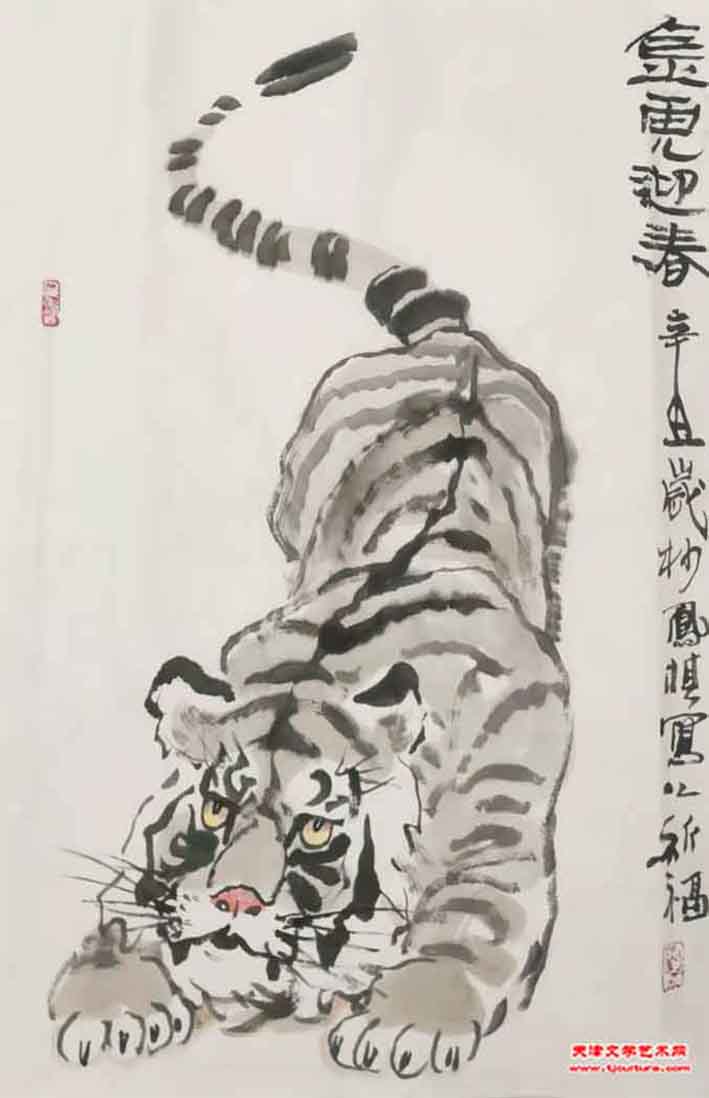 金虎迎春
辛丑歲杪鳳寫以祈福
天津文学艺术网
www.tjculture.com